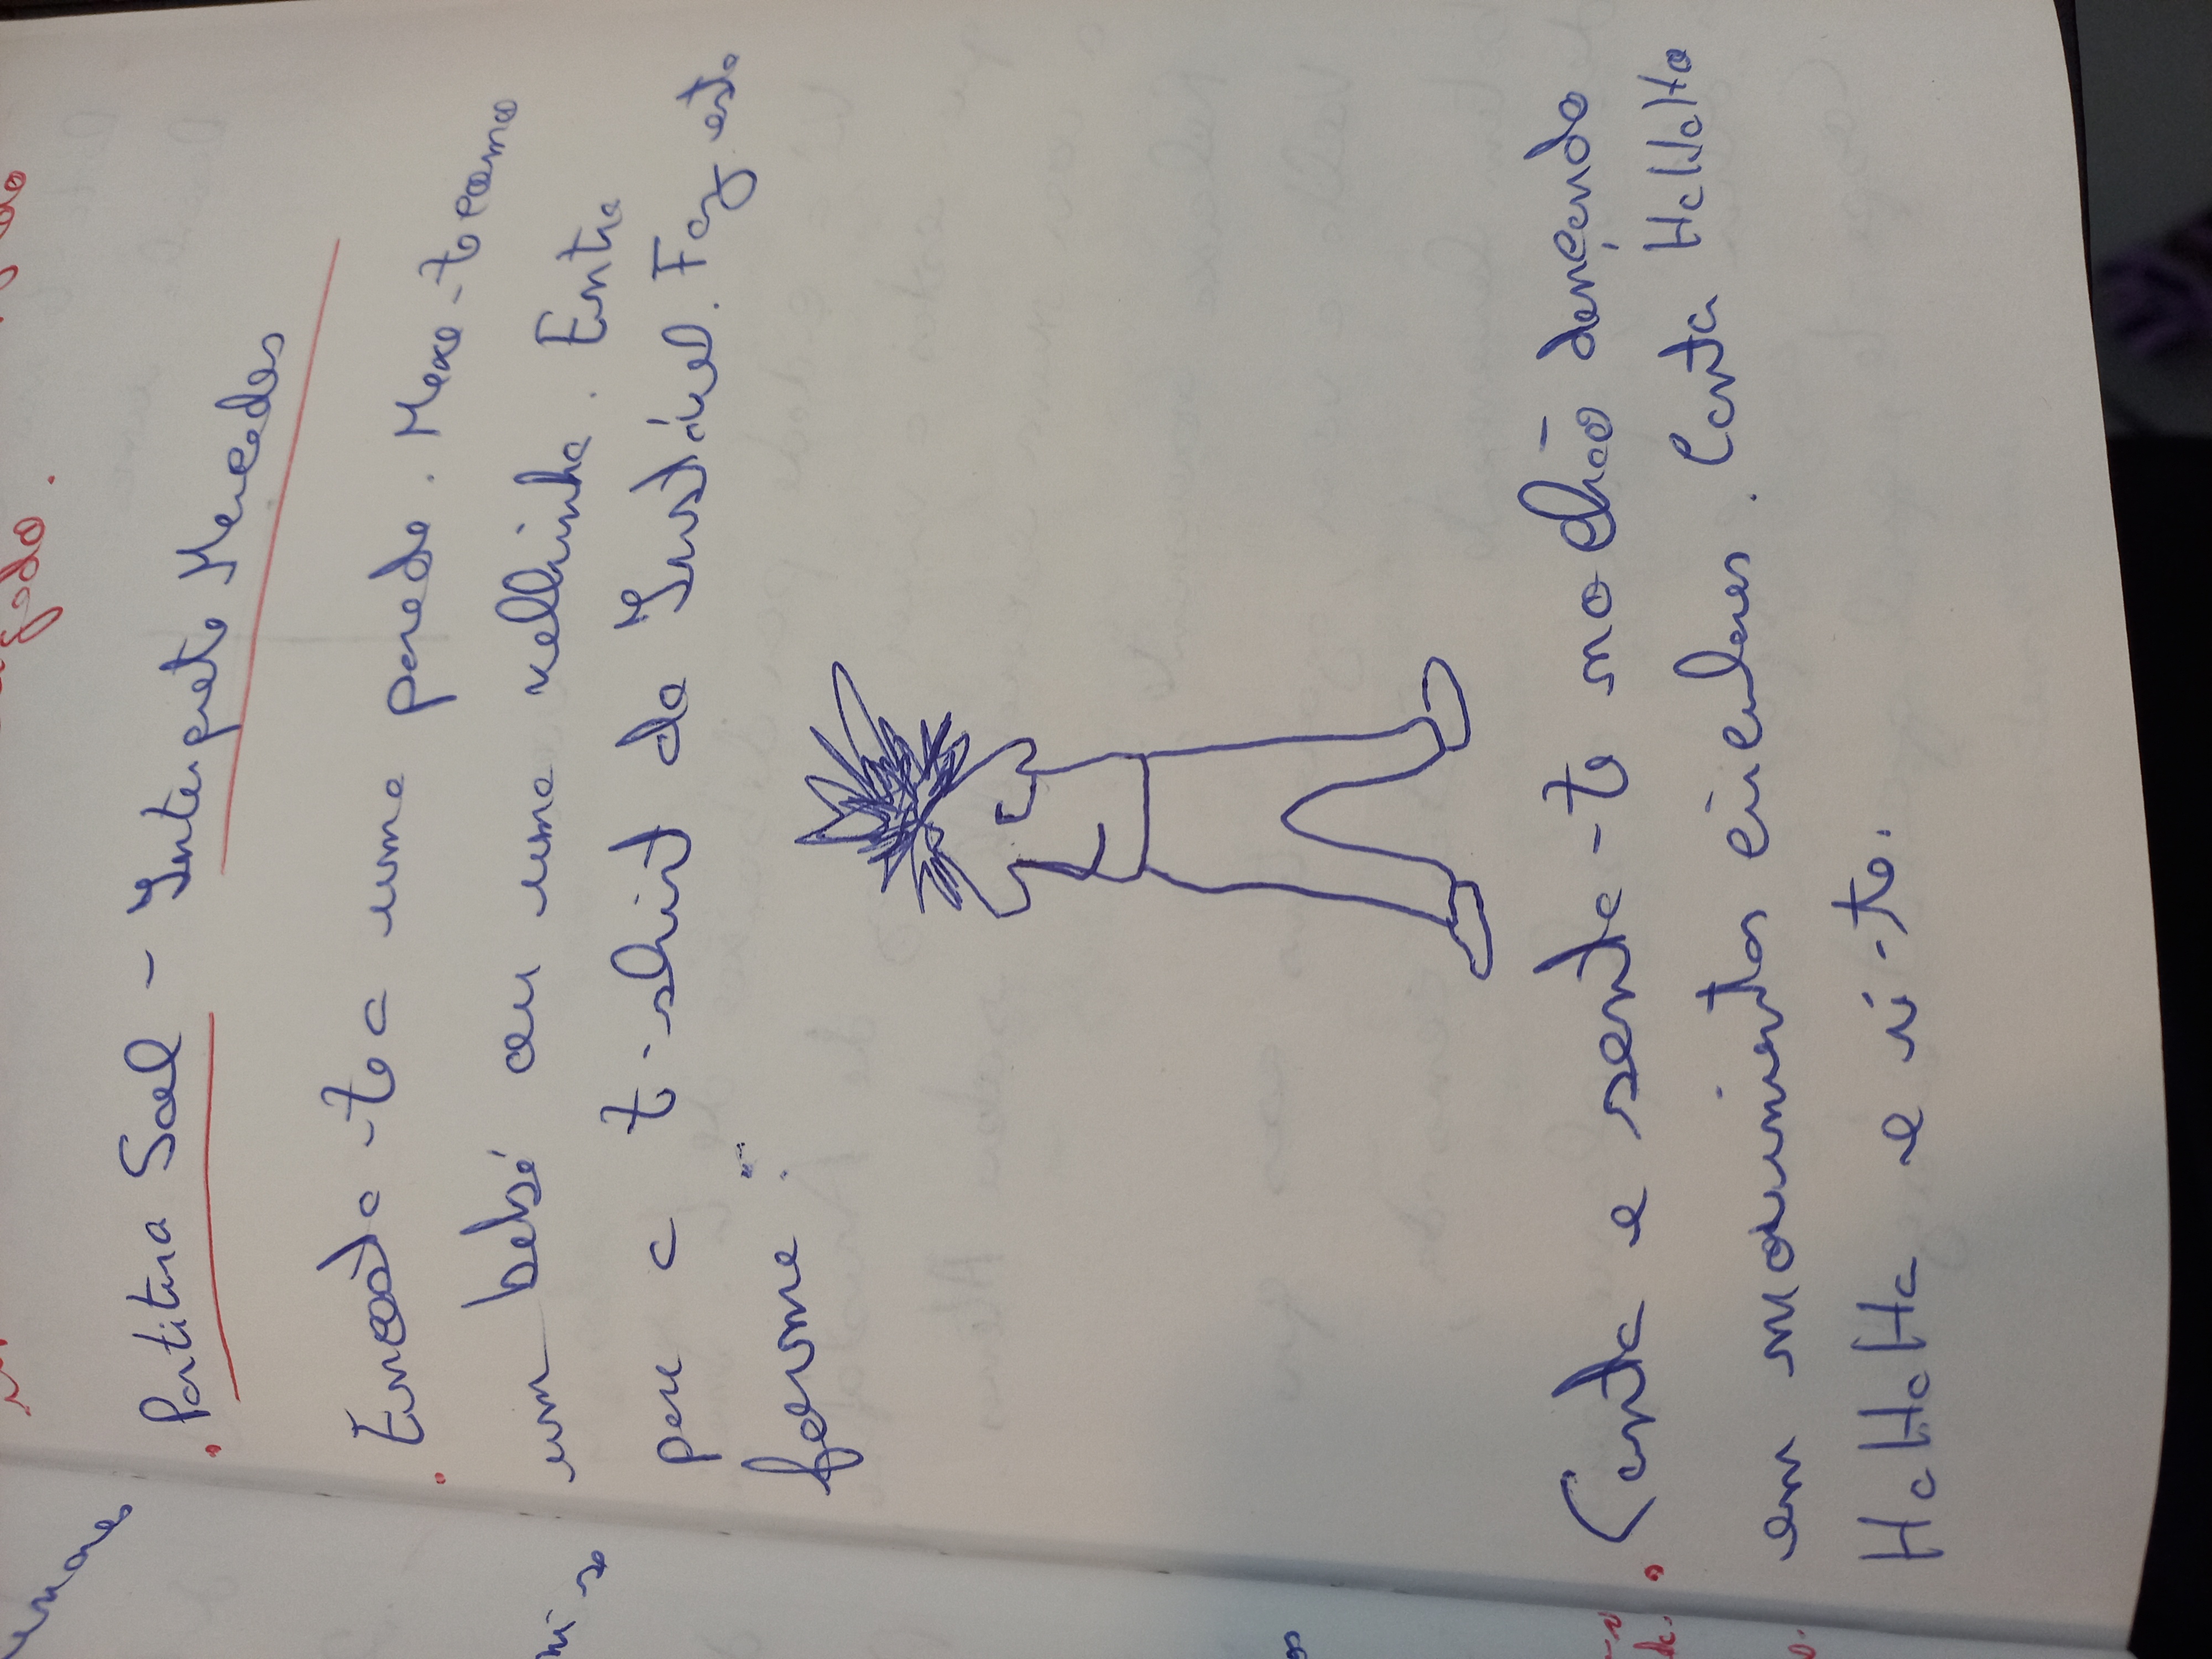 Partitura Sael - Interprete Mercedes
Encosta-te a uma parede. Mexe-te como
um bebé ou uma velhinha. Entra
para a t-shirt da Instável. Faz esta
forma:
Canta e senta-te no chão dançando
em movimentos circulares. Canta HaHaHa
HaHaHa e ri-te.